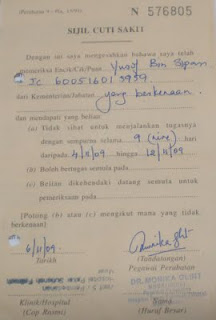 N 576805
SIJIL CUTI SAKIT
Dengan ini saya mengesahkan bahawa saya telah
memeriksa Encik/Cik/Puan Yusof Bon
IC 600516015959
dari Kementerian/Jabatan yang berkenaan
dan mendapati yang beliau:
(a) Tidak sihat untuk menjalankan tugasnya
dengan sempurna selama 9 (nine) hari
daripada 4/11/09 hingga 12/11/09
(b) Boleh bertugas semula pada
(c) Beliau dikehendaki datang semula untuk
pemeriksaan pada
[Potong (b) atau (c) mengikut mana yang tidak
berkenaan]
6/11/09
Tarikh
(Tandatangan)
Pegawai Perubatan
Klinik/Hospital
(Cop Rasmi)
Nama
(Huruf Besar)